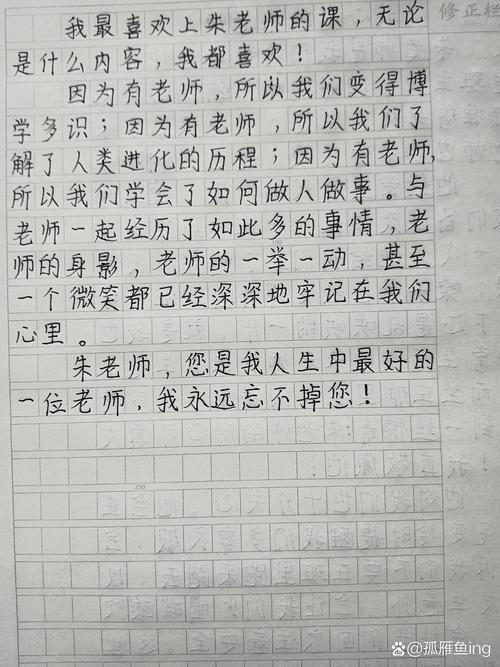 我最喜欢上朱老师的课，无论
修正栏
是什么内容，我都喜欢！
因为有老师，所以我们变得博
学多识；因为有老师，所以我们了
解了人类进化的历程；因为有老师，
所以我们学会了如何做人做事。与
老师一起经历了如此多的事情，老
师的身影，老师的一举一动，甚至
一个微笑都已经深深地牢记在我们
心里。
朱老师，您是我人生中最好的
一位老师，我永远忘不掉您！
200
@孤雁鱼ing